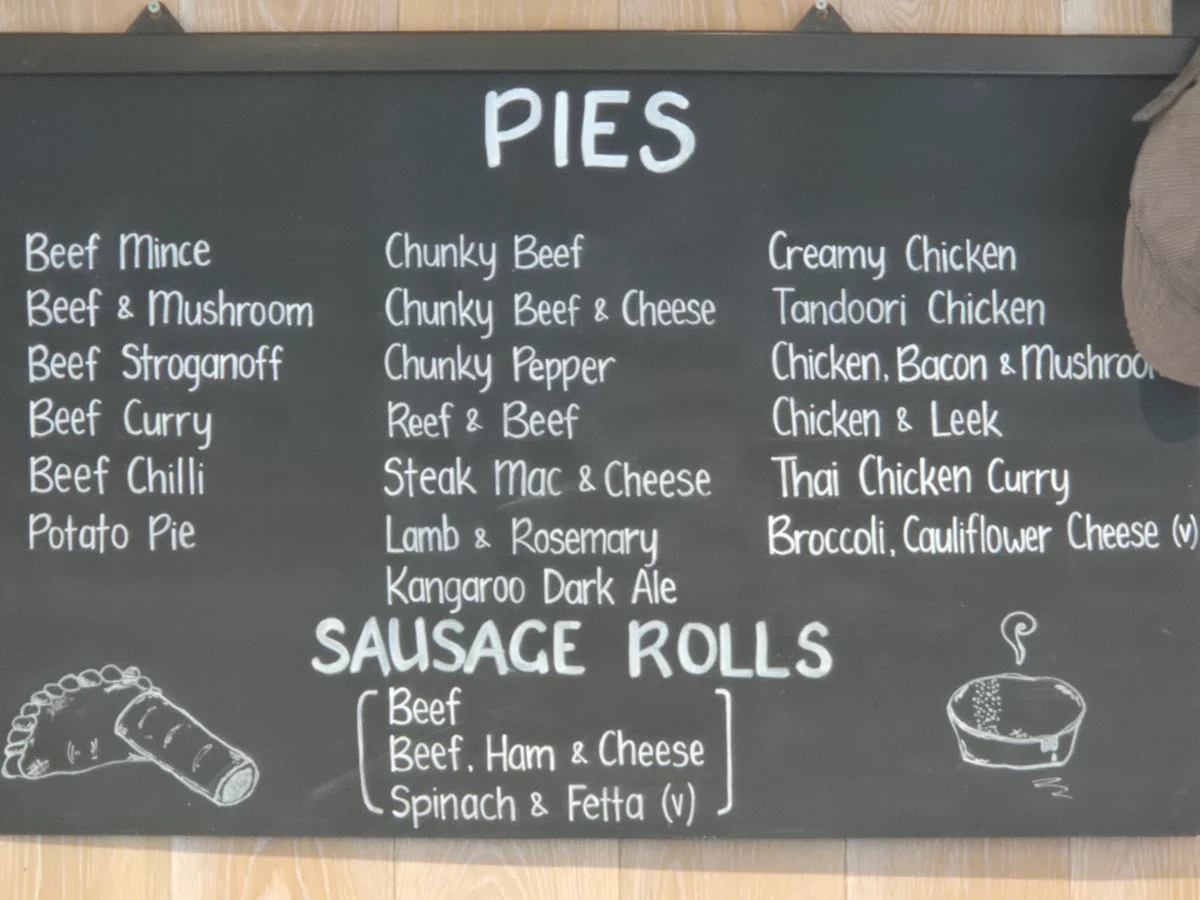 PIES
Beef Mince
Beef & Mushroom
Beef Stroganoff
Beef Curry
Beef Chilli
Potato Pie
Chunky Beef
Chunky Beef & Cheese
Chunky Pepper
Reef & Beef
Steak Mac & Cheese
Lamb & Rosemary
Kangaroo Dark Ale
Creamy Chicken
Tandoori Chicken
Chicken, Bacon & Mushroom
Chicken & Leek
Thai Chicken Curry
Broccoli, Cauliflower Cheese (v)
SAUSAGE ROLLS
Beef
Beef, Ham & Cheese
Spinach & Fetta (v)